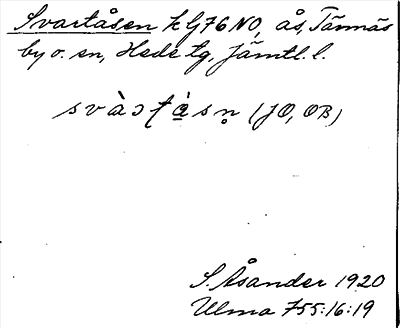 Svartåsen k G76NO, ås, Tännäs
by o. sn, Hede tg, Jämtl. l.
(JO, OB)
S. Åsander 1920
Ulma 755:16:19